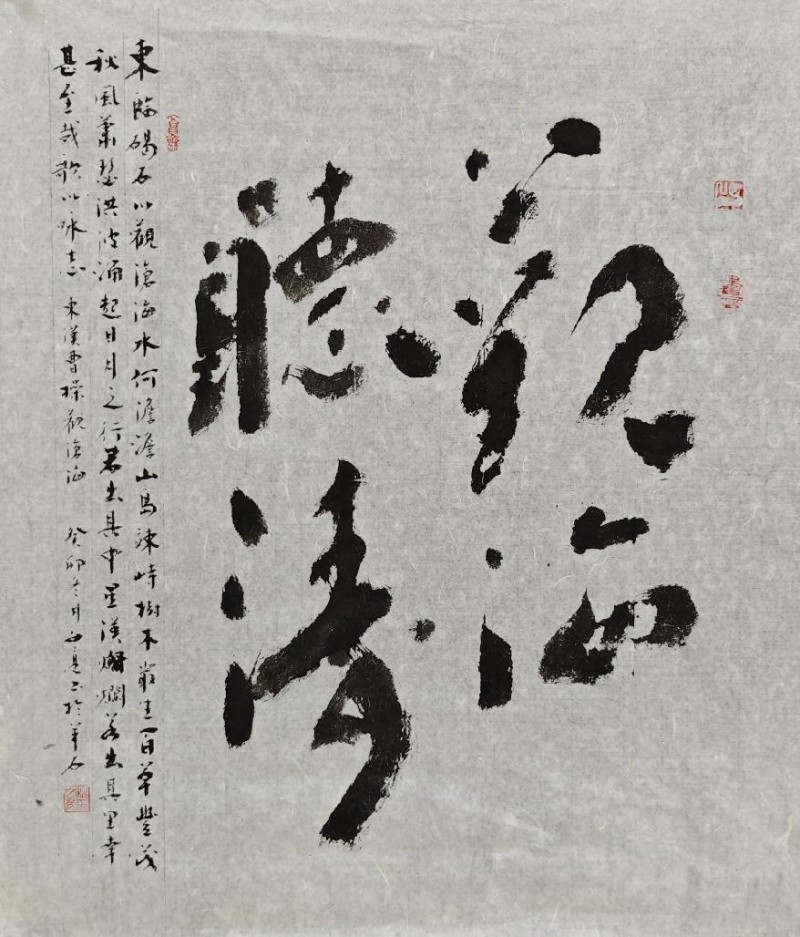 觀海
聽濤
東臨碣石以觀滄海水何澹澹山島竦峙樹木叢生百草豐茂
秋風蕭瑟洪波涌起日月之行若出其中星漢燦爛若出其里幸
甚至哉歌以咏志 東漢曹操觀滄海 癸卯冬月